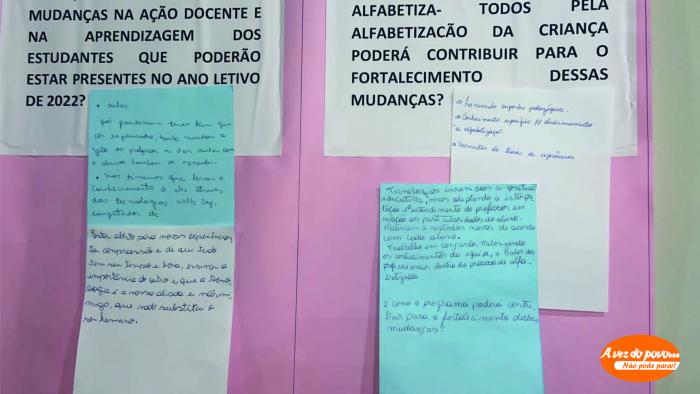 MUDANÇAS NA AÇÃO DOCENTE E
NA APRENDIZAGEM DOS
ESTUDANTES QUE PODERÃO
ESTAR PRESENTES NO ANO LETIVO
DE 2022?
• aulas
pós pandemia tudo tem que
ser repensado, tanto mudou o
jeito do professor a dar aula com
o aluno também de aprender.
• nós tivemos que levar o
conhecimento à eles através
das tecnologias,
computador etc
Estar aberto para novas experiências
Ter compreensão e de que tudo
tem seu tempo e hora, ensinou a
importância do outro e que a tecno-
logia é a nossa aliada e não ini-
miga, que não substitui o
ser humano.
ALFABETIZA- TODOS PELA
ALFABETIZACÃO DA CRIANÇA
PODERÁ CONTRIBUIR PARA O
FORTALECIMENTO DESSAS
MUDANÇAS?
suporte pedagógico.
Conhecimento específico p/ direcionamento
a alfabetização.
Momentos de troca de experiências
Tecnologias inseridas a prática
educativa, mas adaptando a interpre
tação e entendimento do professor em
relação as particularidades do aluno.
Materiais e métodos novos de acordo
com cada aluno.
Trabalho em conjunto, valorizando
os conhecimentos da equipe, o valor dos
profissionais dentro do processo de alfa-
betização
2 Como o programa poderá contri
buir para o fortalecimento dessas
mudanças?
A vez do povo...
Não pode parar!